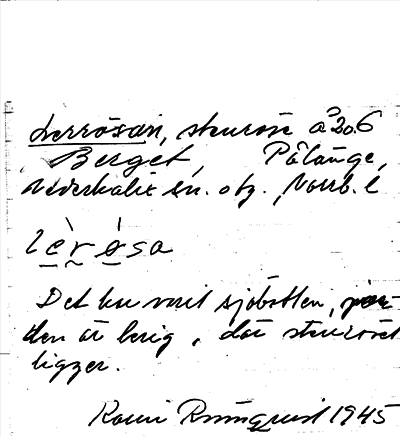 Lerrösan, stenröse å 20.6
Berget, Pålänge,
Nederkalix sn. o tg., Norrb. l
lèrø̀sa
Det har varit sjöbotten,
den är berig, där stenröset
ligger.
1945